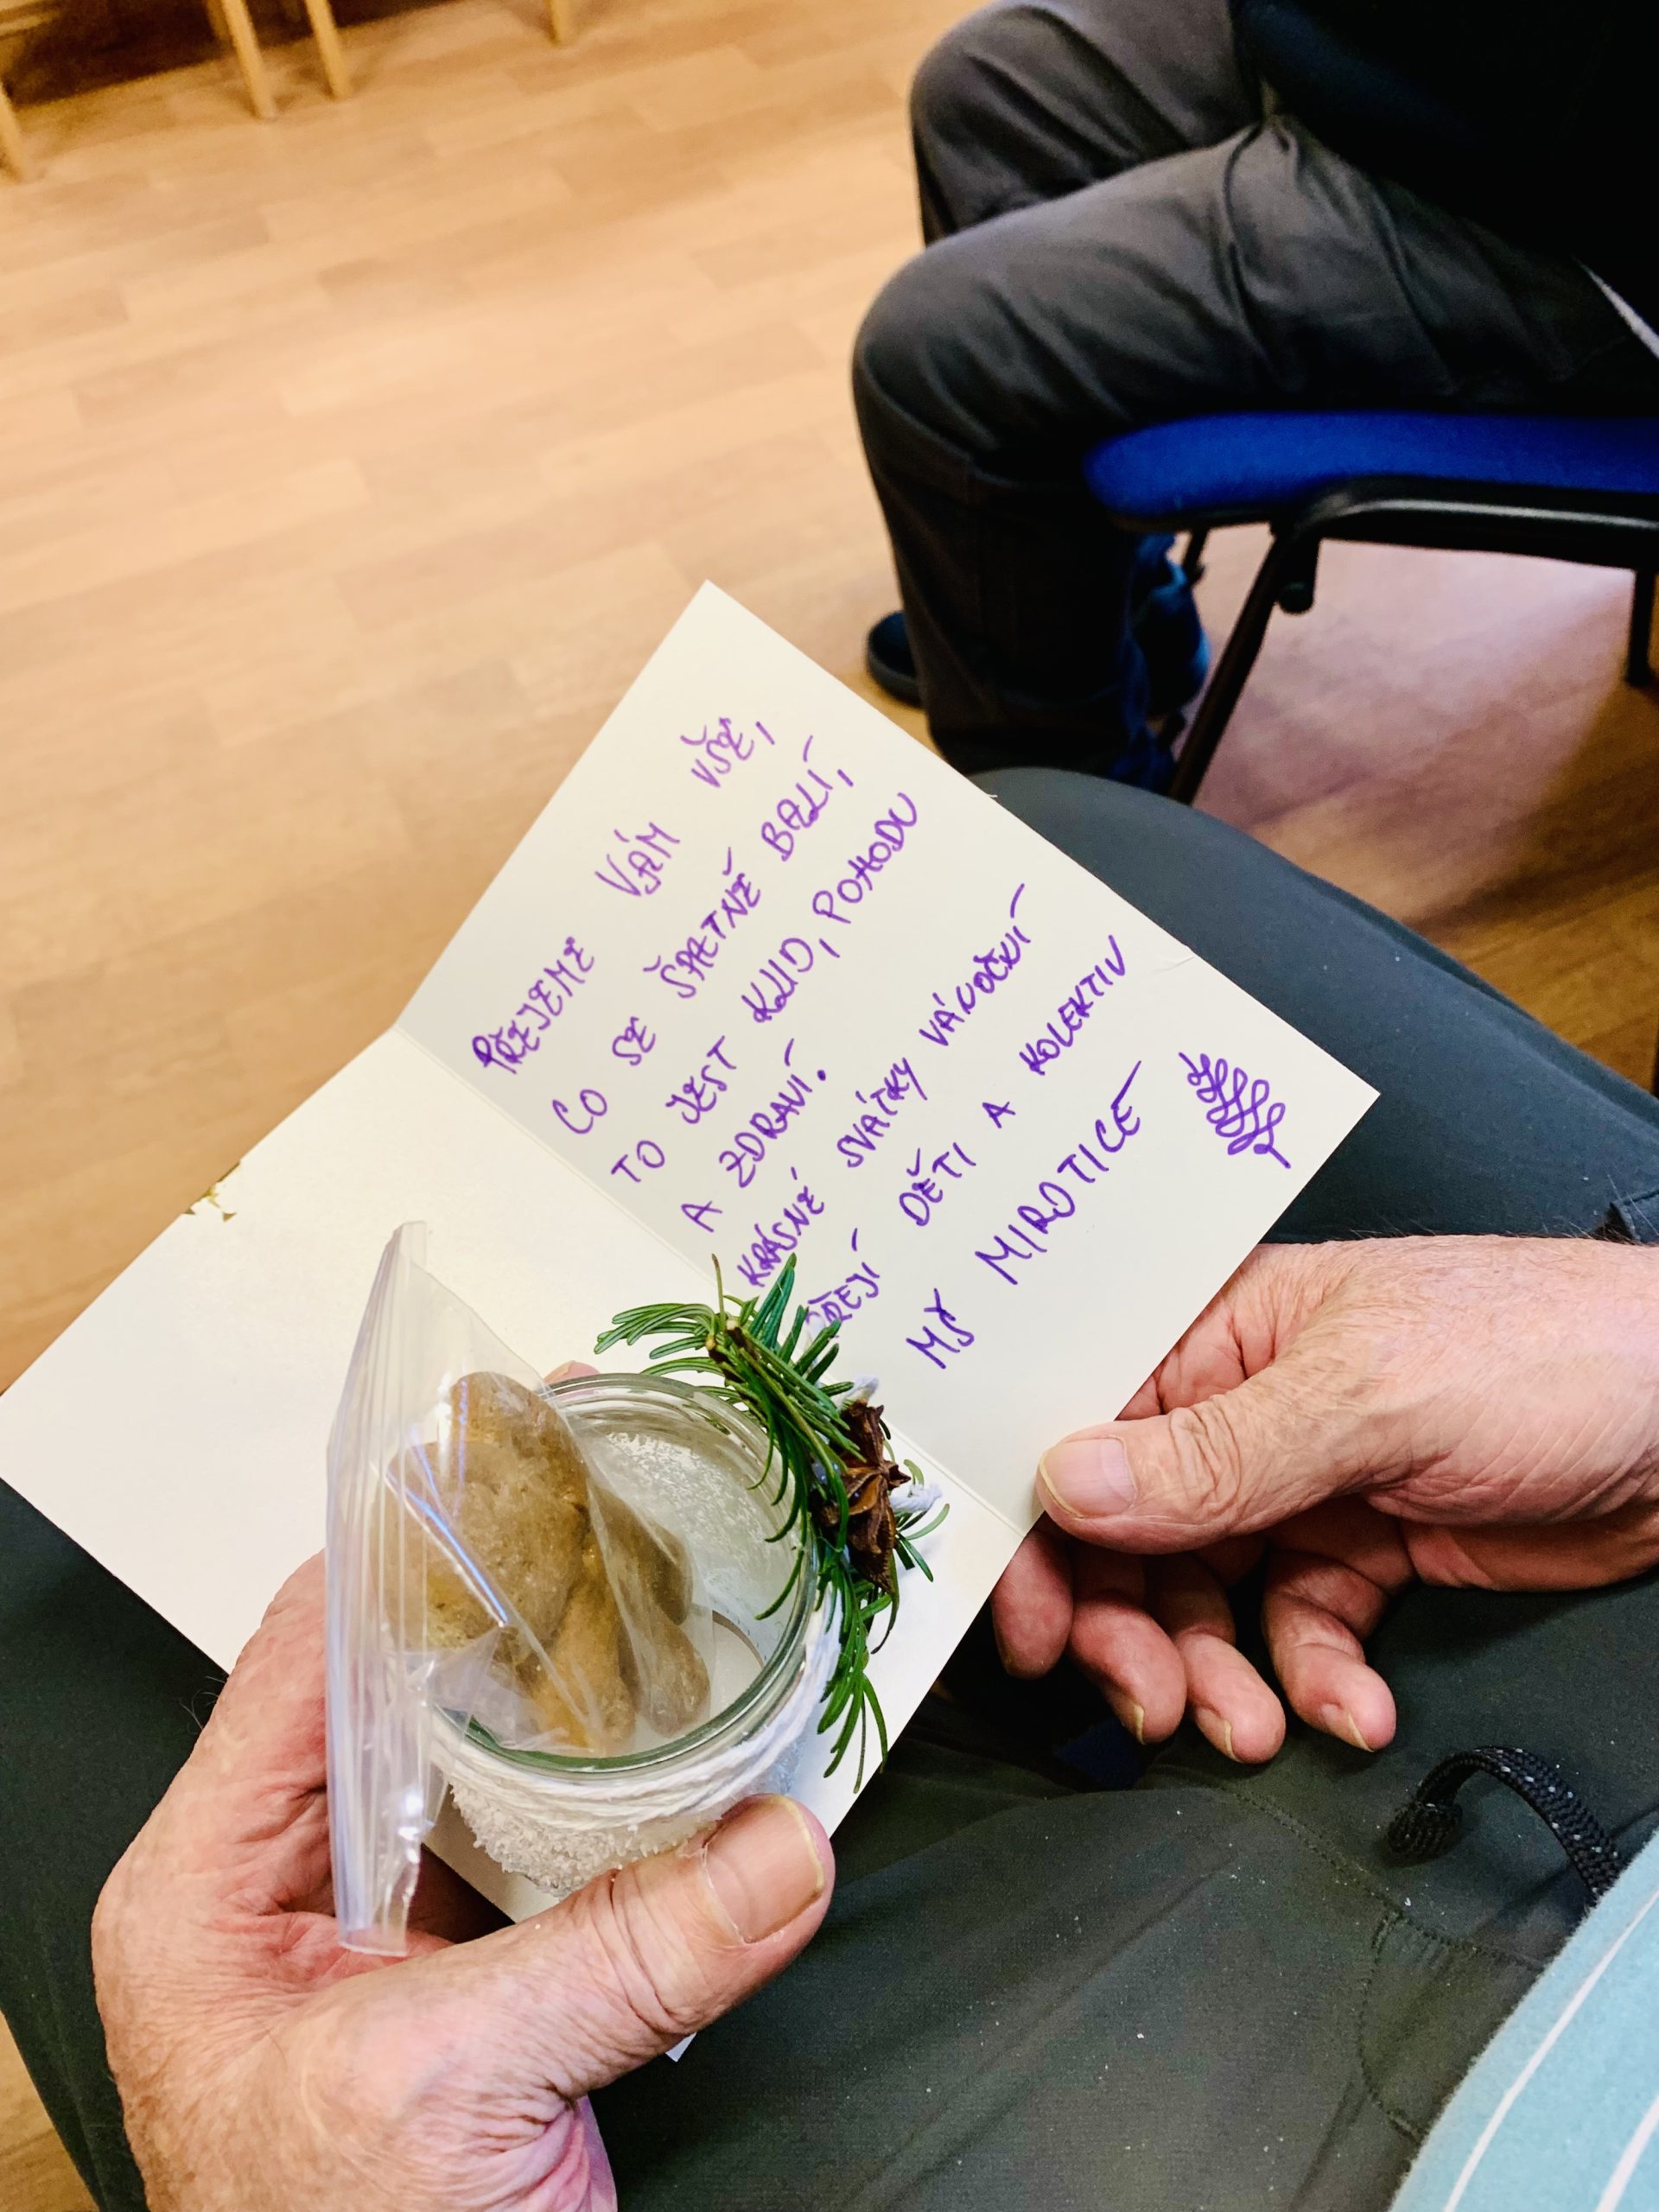 PŘEJEME VÁM VŠE,
CO SE ŠPATNĚ BALÍ,
TO JEST KLID, POHODU
A ZDRAVÍ.
KRÁSNÉ SVÁTKY VÁNOČNÍ
PŘEJÍ DĚTI A KOLEKTIV
MŠ MIROTICE